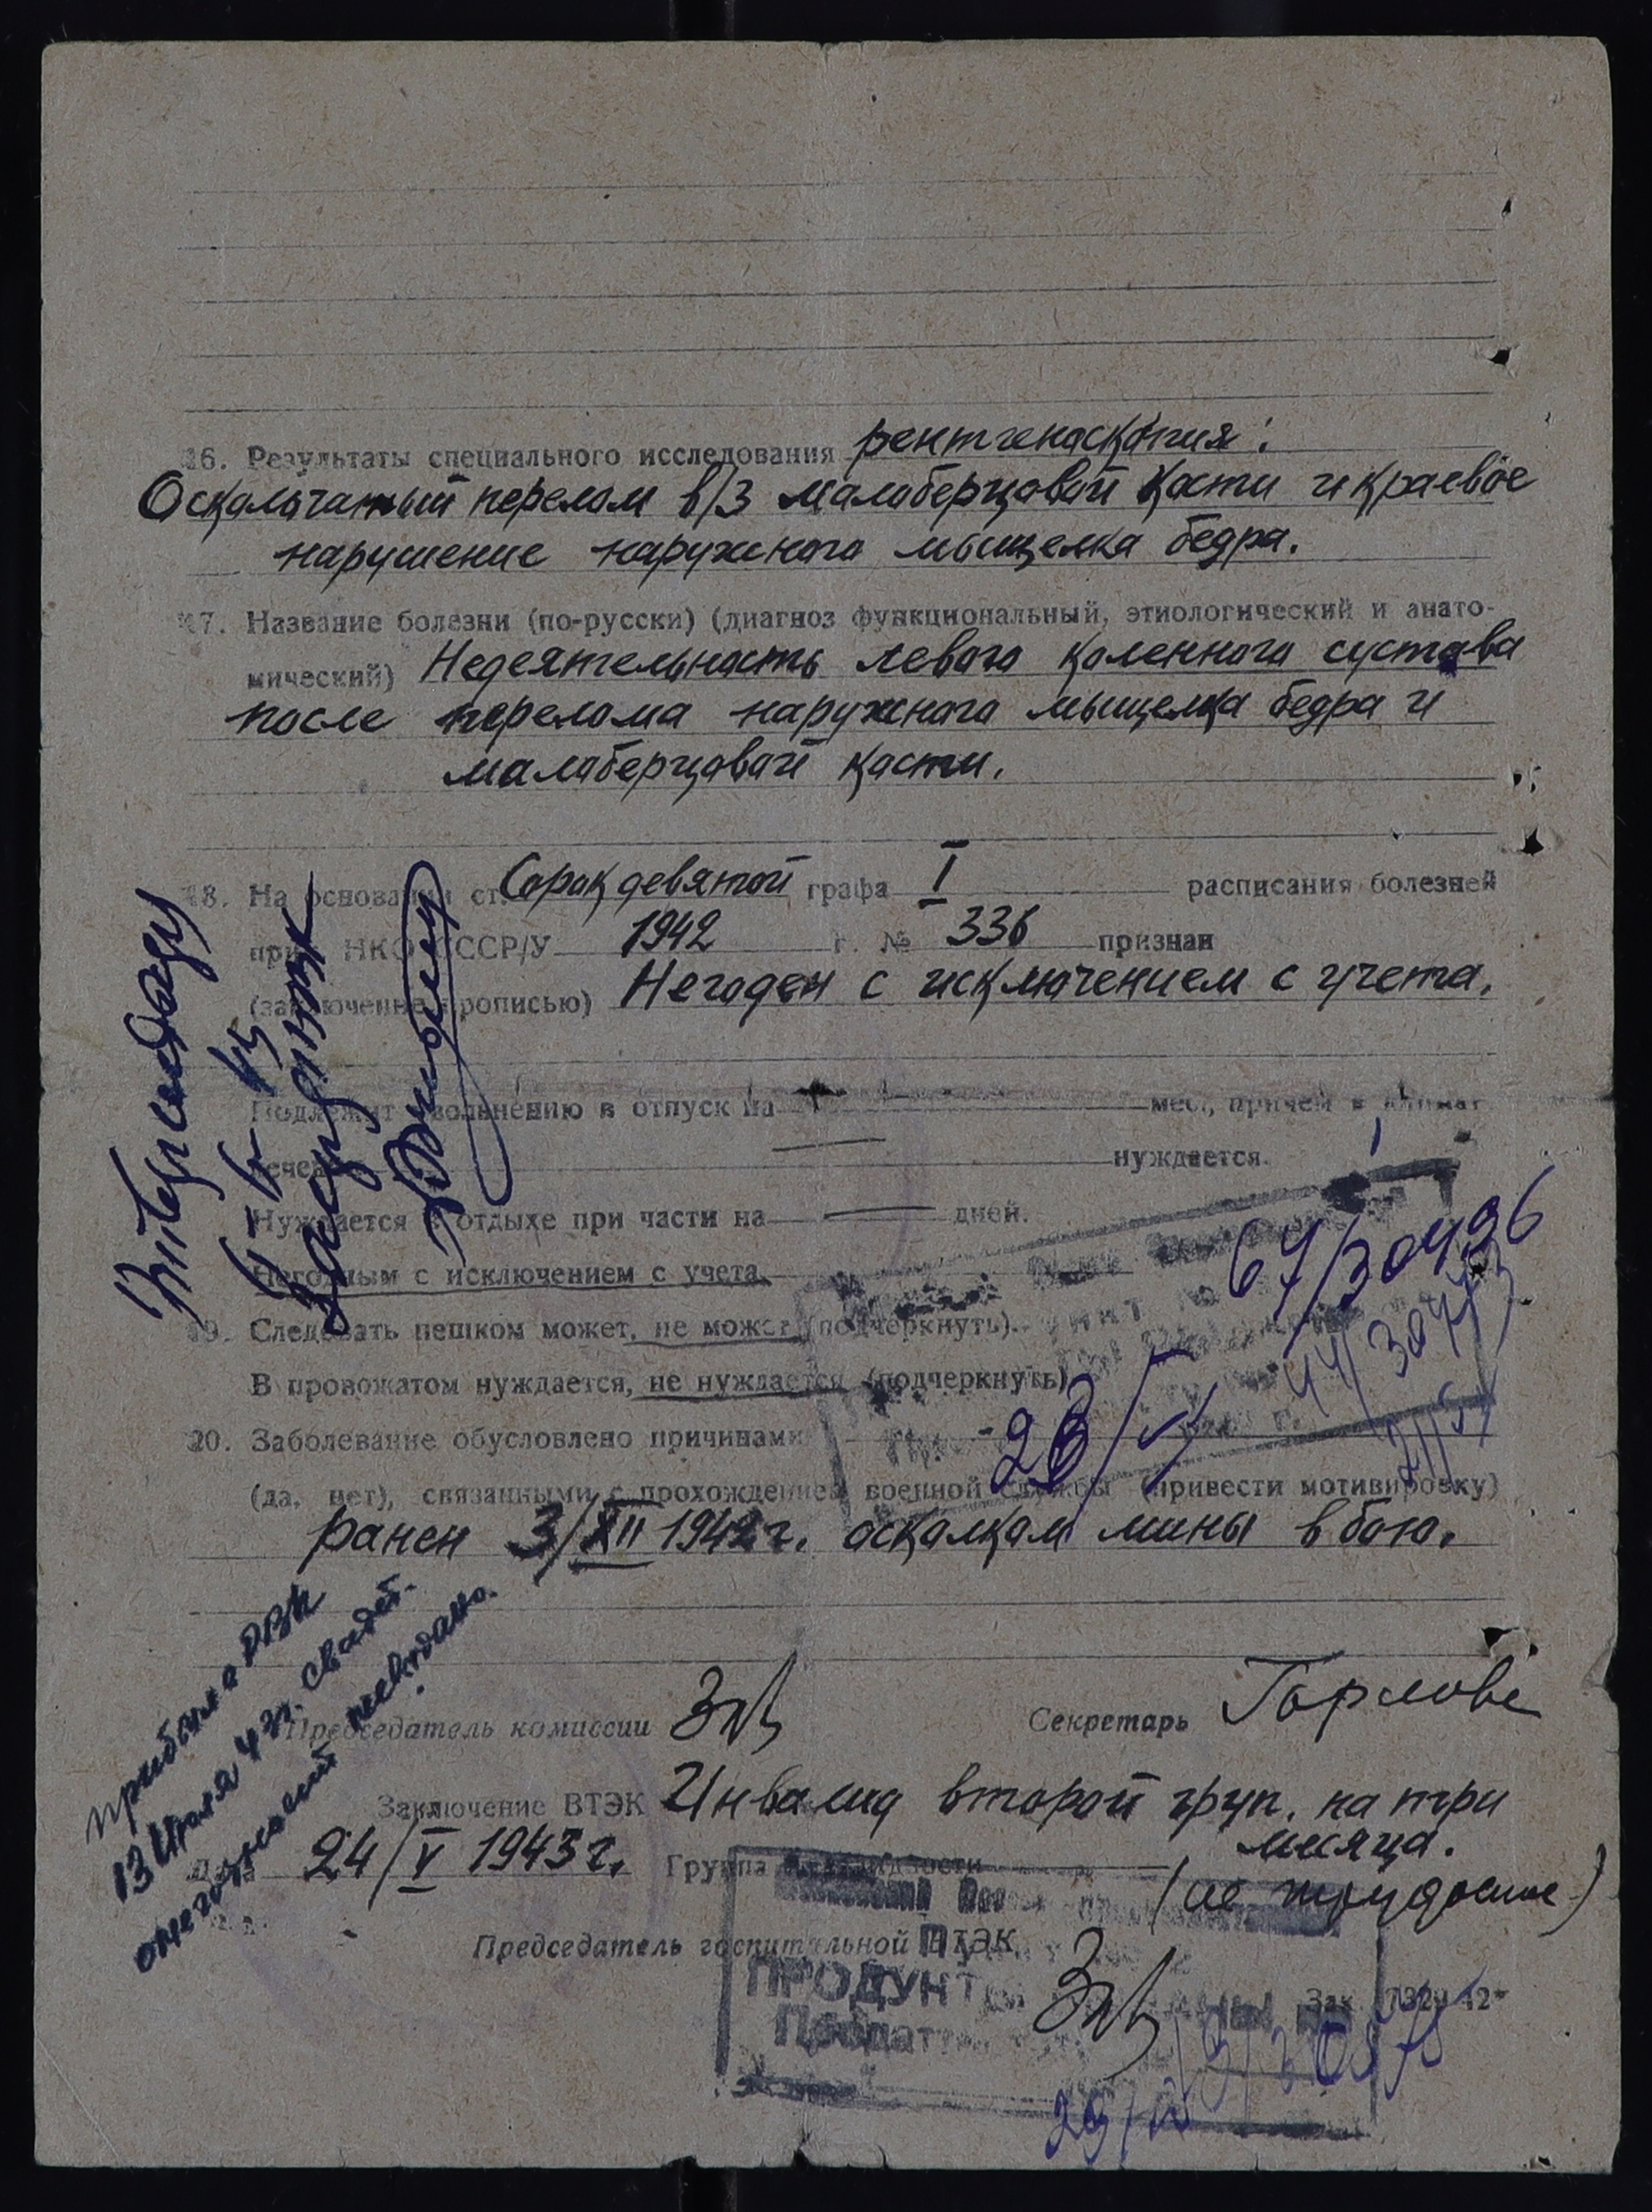 16. Результаты специального исследования рентгенаскопия:
Оскольчатный перелом в/3 малоберцовой кости и краевое
нарушение наружного мыщелка бедра.
17. Название болезни (по-русски) (диагноз функциональный, этиологический и анато-
мический) Недеятельность левого коленного сустава
после перелома наружного мыщелка бедра и
малоберцовой кости.
18. На основании ст. Сорок девятой графа I расписания болезней
прик. НКО СССР/У 1942 г. № 336 признан
(заключение прописью) Негоден с исключением с учета.
Подлежит увольнению в отпуск на — мес., причем в климат.
лечен — нуждается.
Нуждается в отдыхе при части на — дней.
Негодным с исключением с учета.
19. Следовать пешком может, не может (подчеркнуть).
В провожатом нуждается, не нуждается (подчеркнуть)
20. Заболевание обусловлено причинами
(да, нет), связанными с прохождением военной службы (привести мотивировку)
ранен 3/XII 1942 г. осколком мины в бою.
64/30496
44/30443
28/V
Председатель комиссии Секретарь Горлова
Заключение ВТЭК Инвалид второй груп. на три
месяца.
24/V 1943 г. Группа инвалидности
Председатель госпитальной ВТЭК
прибыл в РВК
13 Июля 43 г. свидет.
не выдано.
ПРОДУКТ
Продатт
Зак.